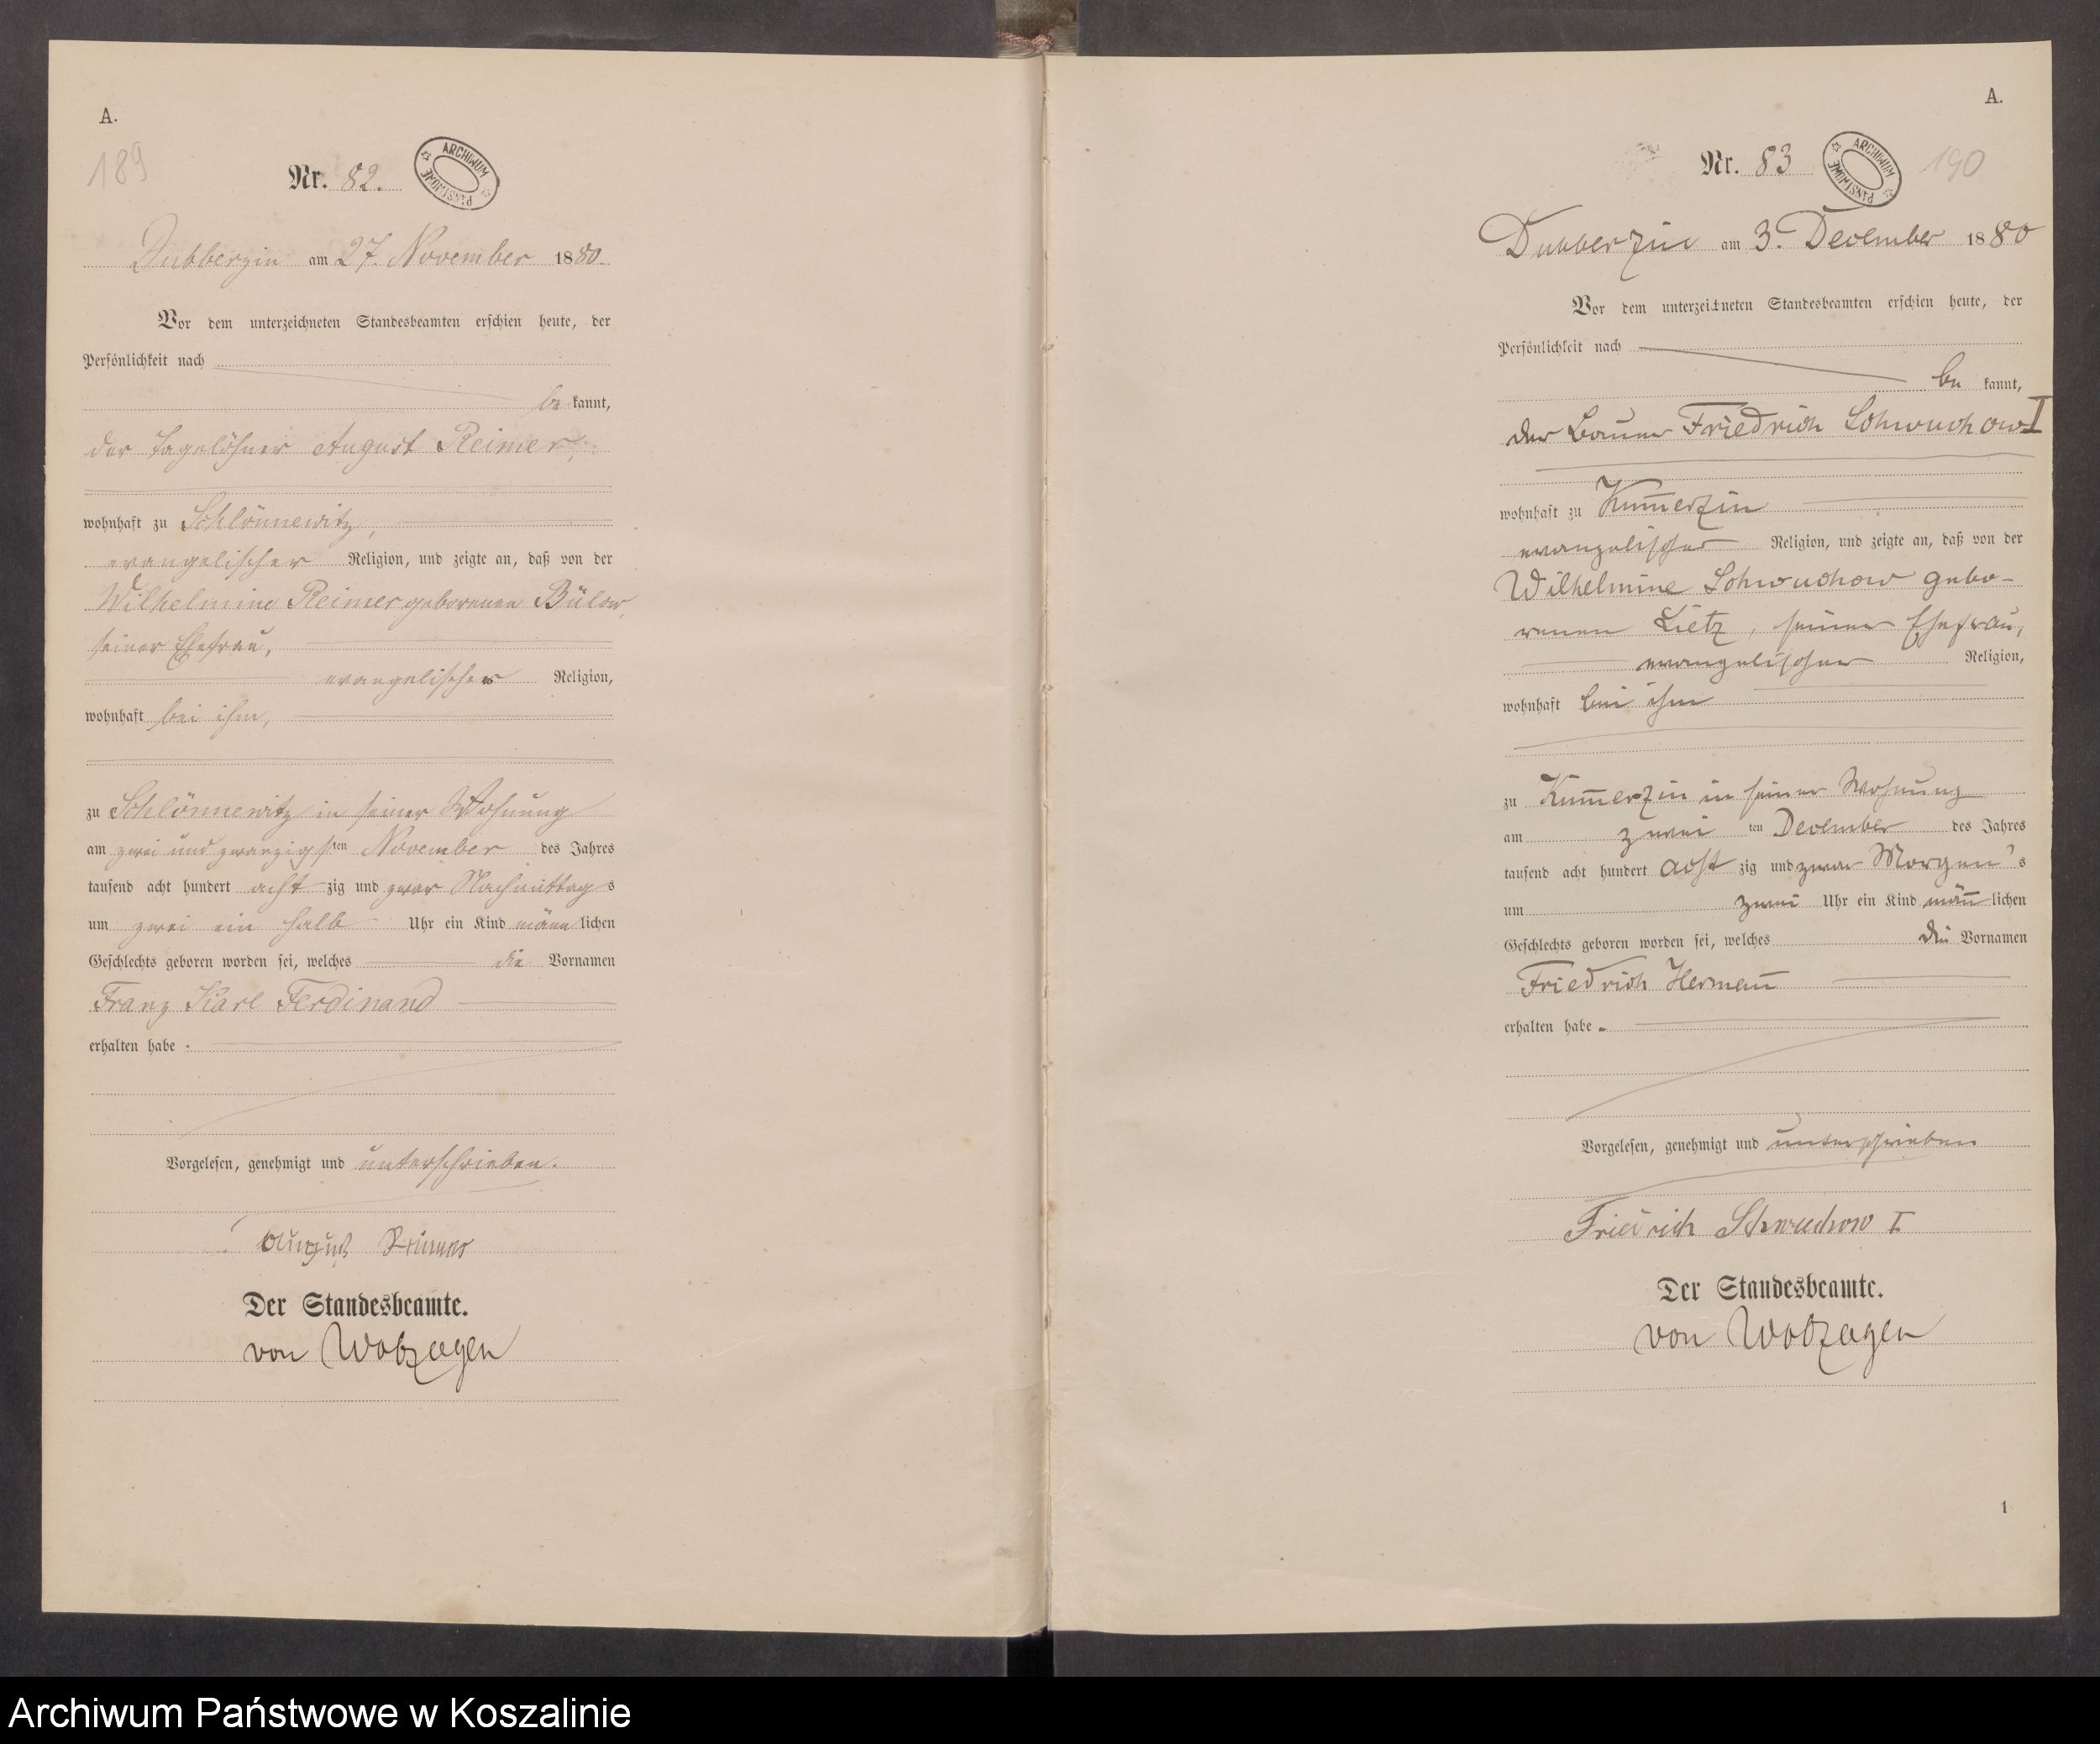 A.
189
Nr. 82.
ARCHIWUM PAŃSTWOWE
Dubberzin am 27. November 1880.
Vor dem unterzeichneten Standesbeamten erschien heute, der
Persönlichkeit nach
be kannt,
der Tagelöhner August Reimer,
wohnhaft zu Schlönnewitz,
evangelischer Religion, und zeigte an, daß von der
Wilhelmine Reimer geborenen Bülow,
seiner Ehefrau,
evangelischer Religion,
wohnhaft bei ihm,
zu Schlönnewitz in seiner Wohnung
am zwei und zwanzigsten November des Jahres
tausend acht hundert acht zig und zwar Nachmittags
um zwei ein halb Uhr ein Kind männlichen
Geschlechts geboren worden sei, welches die Vornamen
Franz Karl Ferdinand
erhalten habe.
Vorgelesen, genehmigt und unterschrieben.
August Reimer
Der Standesbeamte.
von
A.
Nr. 83
ARCHIWUM PAŃSTWOWE
190
Dubberzin am 3. December 1880
Vor dem unterzeichneten Standesbeamten erschien heute, der
Persönlichkeit nach
be kannt,
der Bauer Friedrich Schwuchow I
wohnhaft zu Kum̅erzin
evangelischer Religion, und zeigte an, daß von der
Wilhelmine Schwuchow gebo-
renen Lietz, seiner Ehefrau,
evangelischer Religion,
wohnhaft bei ihm
zu Kum̅erzin in seiner Wohnung
am zwei ten December des Jahres
tausend acht hundert acht zig und zwar Morgen's
um zwei Uhr ein Kind män̅lichen
Geschlechts geboren worden sei, welches die Vornamen
Friedrich Herman̅
erhalten habe.
Vorgelesen, genehmigt und unterschrieben
Friedrich Schwuchow I
Der Standesbeamte.
von
1
Archiwum Państwowe w Koszalinie